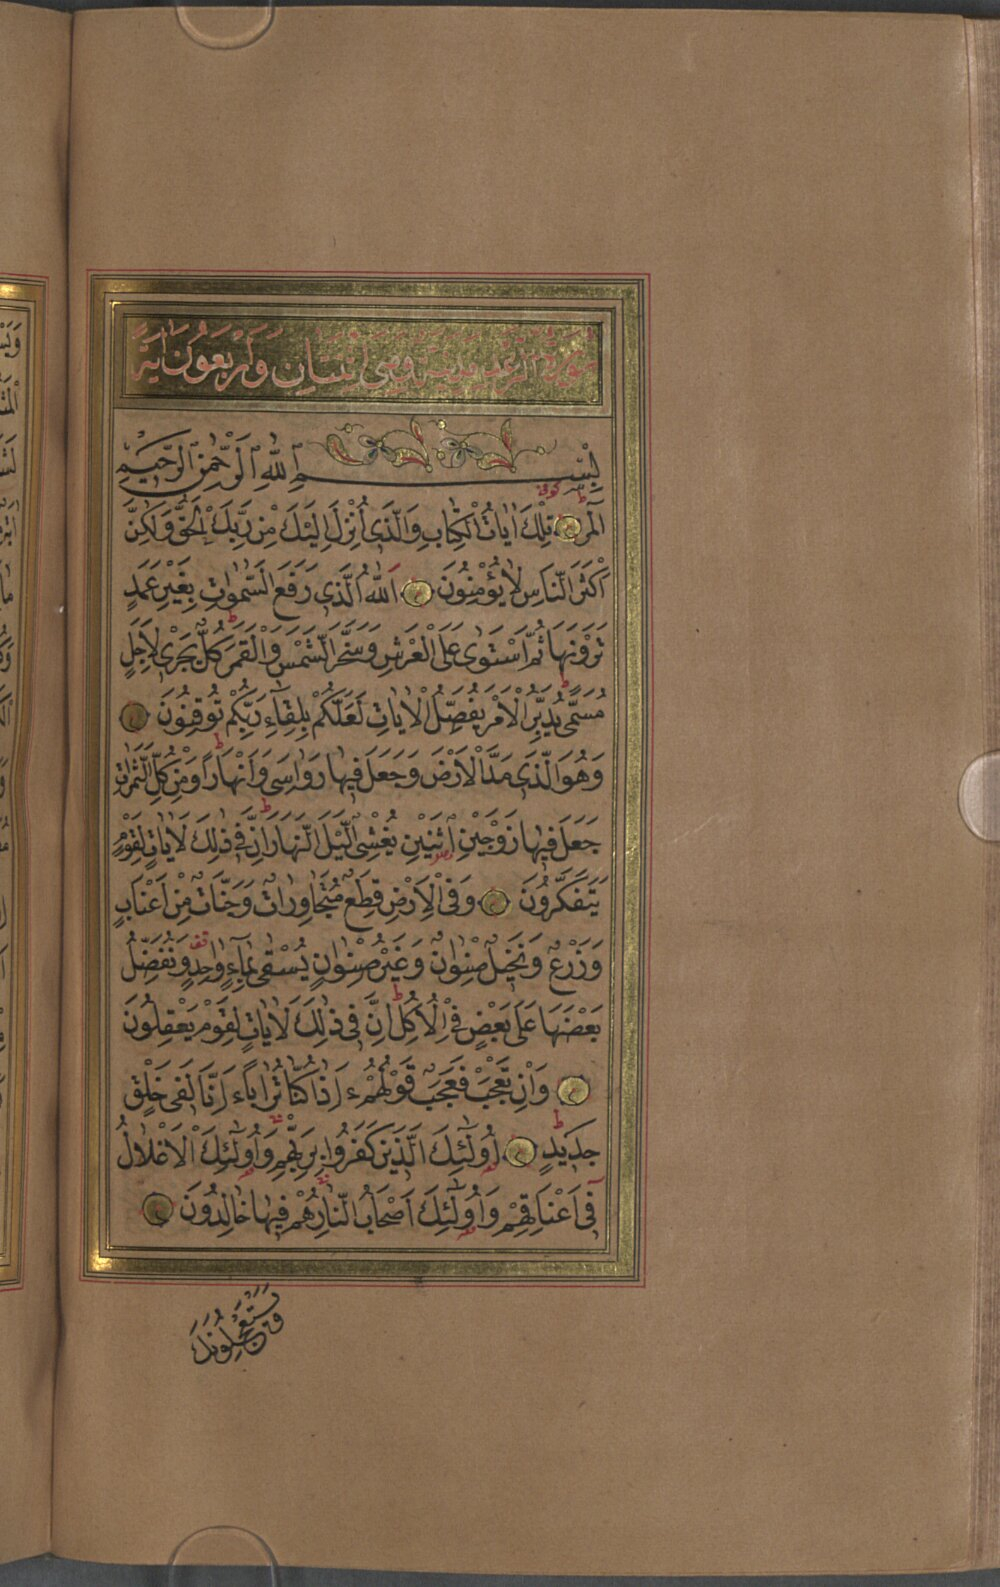 سُورَةُ الرَّعْدِ مَدَنِيَّةٌ وَهِيَ اثْنَتَانِ وَاَرْبَعُونَ اٰيَةً
بِسْمِ ٱللّٰهِ ٱلرَّحْمٰنِ ٱلرَّحِيمِ
كوفى
الٓمٓرٰ تِلْكَ اٰيَاتُ الْكِتَابِ وَالَّذٖٓى اُنْزِلَ اِلَيْكَ مِنْ رَبِّكَ الْحَقُّ وَلٰكِنَّ
اَكْثَرَ النَّاسِ لَا يُؤْمِنُونَ اَللّٰهُ الَّذٖى رَفَعَ السَّمٰوَاتِ بِغَيْرِ عَمَدٍ
تَرَوْنَهَا ثُمَّ اسْتَوٰى عَلَى الْعَرْشِ وَسَخَّرَ الشَّمْسَ وَالْقَمَرَ كُلٌّ يَجْرٖى لِاَجَلٍ
مُسَمًّى يُدَبِّرُ الْاَمْرَ يُفَصِّلُ الْاٰيَاتِ لَعَلَّكُمْ بِلِقَٓاءِ رَبِّكُمْ تُوقِنُونَ
وَهُوَ الَّذٖى مَدَّ الْاَرْضَ وَجَعَلَ فٖيهَا رَوَاسِىَ وَاَنْهَارًا وَمِنْ كُلِّ الثَّمَرَاتِ
جَعَلَ فٖيهَا زَوْجَيْنِ اثْنَيْنِ يُغْشِى الَّيْلَ النَّهَارَ اِنَّ فٖى ذٰلِكَ لَاٰيَاتٍ لِقَوْمٍ
يَتَفَكَّرُونَ وَفِى الْاَرْضِ قِطَعٌ مُتَجَاوِرَاتٌ وَجَنَّاتٌ مِنْ اَعْنَابٍ
وَزَرْعٌ وَنَخٖيلٌ صِنْوَانٌ وَغَيْرُ صِنْوَانٍ يُسْقٰى بِمَٓاءٍ وَاحِدٍ وَنُفَضِّلُ
بَعْضَهَا عَلٰى بَعْضٍ فِى الْاُكُلِ اِنَّ فٖى ذٰلِكَ لَاٰيَاتٍ لِقَوْمٍ يَعْقِلُونَ
وَاِنْ تَعْجَبْ فَعَجَبٌ قَوْلُهُمْ ءَاِذَا كُنَّا تُرَابًا ءَاِنَّا لَفٖى خَلْقٍ
جَدٖيدٍ اُولٰٓئِكَ الَّذٖينَ كَفَرُوا بِرَبِّهِمْ وَاُولٰٓئِكَ الْاَغْلَالُ
فٖٓى اَعْنَاقِهِمْ وَاُولٰٓئِكَ اَصْحَابُ النَّارِ هُمْ فٖيهَا خَالِدُونَ
وَيَسْتَعْجِلُونَكَ